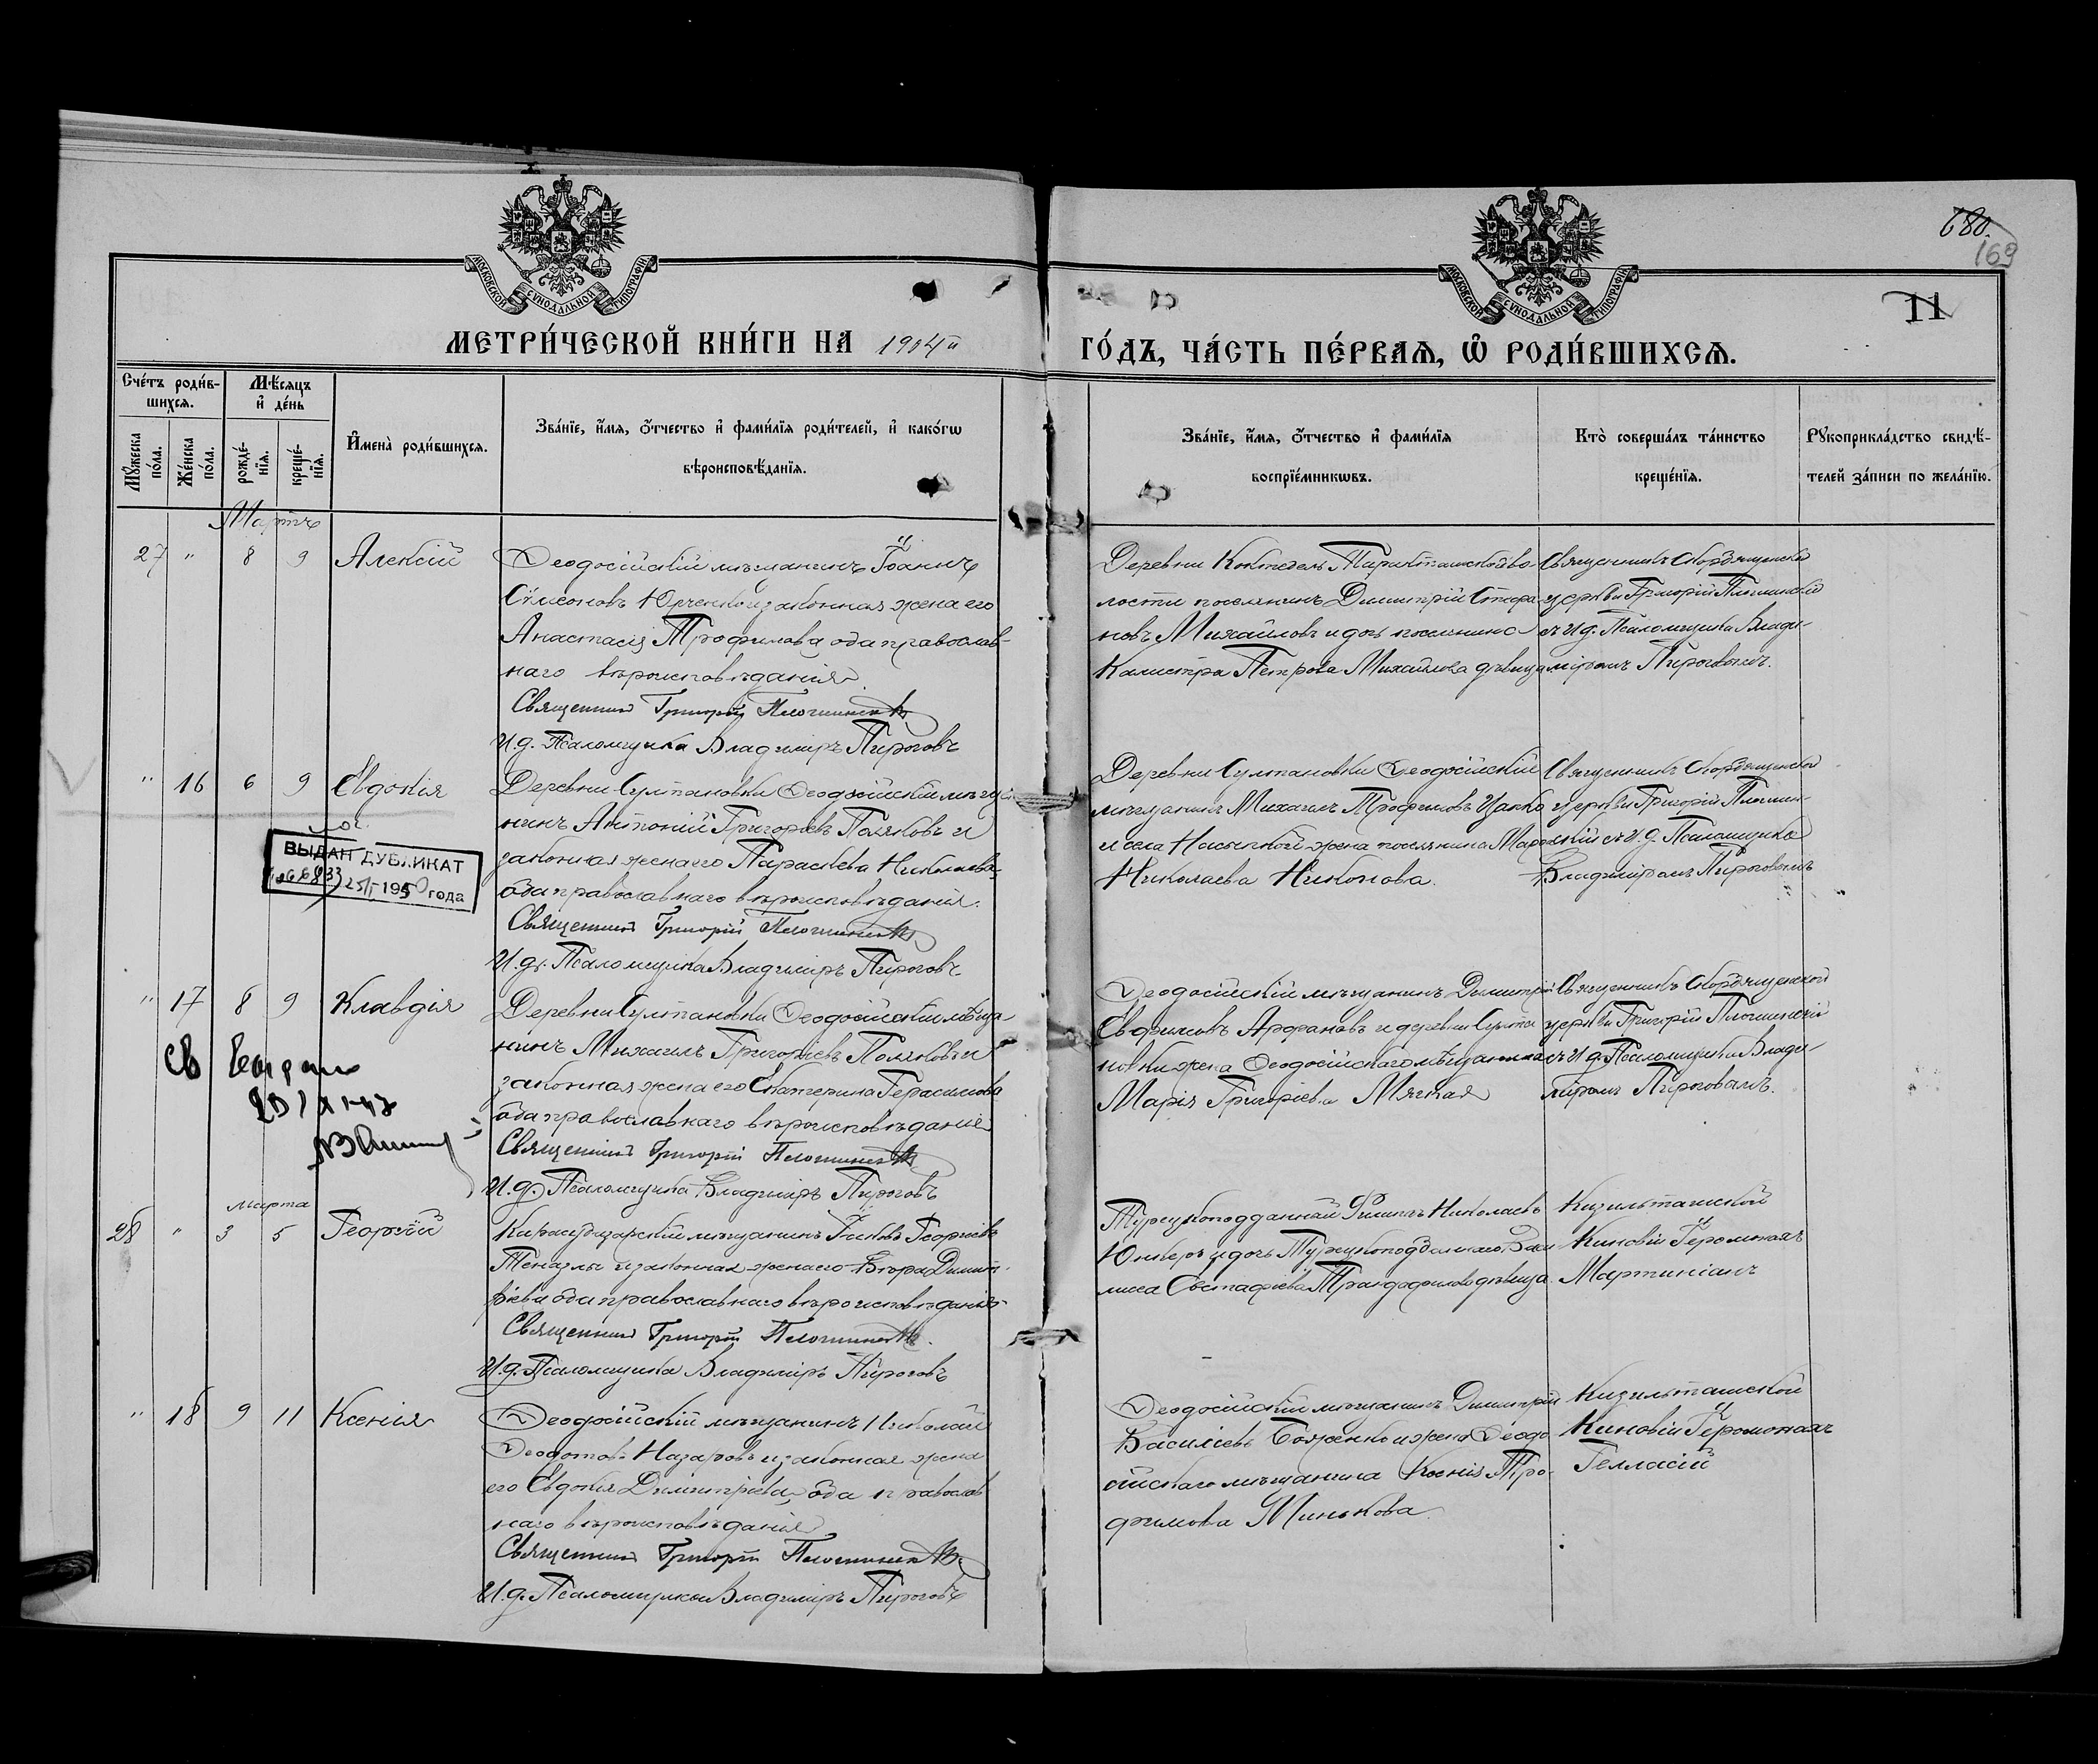 МОСКОВСКОЙ СУНОДАЛЬНОЙ ТИПОГРАФІИ
МОСКОВСКОЙ СУНОДАЛЬНОЙ ТИПОГРАФІИ
680.
169
11
МЕТРИ́ЧЕСКОЙ КНИ́ГИ НА 1904й
ГО́ДЪ, ЧА́СТЬ ПЕ́РВАѦ, Ѡ҆ РОДИ́ВШИХСѦ.
Сче́тъ роди́в-
шихсѧ.
Мꙋ́жеска по́ла.
Же́нска по́ла.
Мѣ́сѧцъ
и҆ де́нь
рожде́-нїѧ.
креще́-нїѧ.
И҆мена̀ роди́вшихсѧ.
Зва́нїе, и҆́мѧ, ѻ҆́тчество и҆ фами́лїѧ роди́телей, и҆ како́гѡ
вѣроисповѣ́данїѧ.
Зва́нїе, и҆́мѧ, ѻ҆́тчество и҆ фами́лїѧ
воспрїе́мникѡвъ.
Кто̀ соверша́лъ та́инство
креще́нїѧ.
Рꙋкоприкла́дство свидѣ́-
телей за́писи по жела́нїю.
Мартъ
27 " 8 9 Алексій
Ѳеодосійскій мѣщанинъ Іоаннъ
Сѵмеоновъ и законная жена его
Анастасія Трофимова оба православ-
наго вѣроисповѣданія
Священникъ Григорій
И.д. Псаломщика Владиміръ Пироговъ
Деревни Коктебель Таракташской во-
лости поселянинъ Димитрій Стефа-
новъ Михайловъ и дочь поселянина
Петрова Михайлова дѣвица
Священникъ Скорбященской
церкви Григорій
съ И.д. Псаломщика Влади-
міромъ Пироговымъ.
" 16 6 9 Евдокія
Деревни Султановки Ѳеодосійскій мѣща-
нинъ Антоній Григоріевъ Поляковъ и
законная жена его Параскева Николаева
оба православнаго вѣроисповѣданія.
Священникъ Григорій
И.д. Псаломщика Владиміръ Пироговъ
Деревни Султановки Ѳеодосійскій
мѣщанинъ Михаилъ Трофимовъ Цапко
и села Насыпкой жена поселянина Марія
Николаева Никонова.
Священникъ Скорбященской
церкви Григорій
съ И.д. Псаломщика
Владиміромъ Пироговымъ
ВЫДАН ДУБЛИКАТ
1950 года
" 17 8 9 Клавдія
Деревни Султановки Ѳеодосійскій мѣща-
нинъ Михаилъ Григоріевъ Поляковъ и
законная жена его Екатерина Герасимова
оба православнаго вѣроисповѣданія
Священникъ Григорій
И.д. Псаломщика Владиміръ Пироговъ
Ѳеодосійскій мѣщанинъ Димитрій
Евфимовъ Арфановъ и деревни Султа
новки жена Ѳеодосійскаго мѣщанина
Марія Григоріева Мягкая
Священникъ Скорбященской
церкви Григорій
съ И.д. Псаломщика Влади-
міромъ Пироговымъ.
марта
28 " 3 5 Георгій
Карасубазарскій мѣщанинъ Іаковъ Георгіевъ
и законная жена его Димит-
ріева оба православнаго вѣроисповѣданія
Священникъ Григорій
И.д. Псаломщика Владиміръ Пироговъ
Турецкоподданный Филиппъ Николаевъ
и дочь Турецкоподданнаго
Евстафіева дѣвица.
Кизильташской
Киновіи Іеромонахъ
Мартиніанъ
" 18 9 11 Ксенія
Ѳеодосійскій мѣщанинъ Николай
Ѳеодотовъ Назаровъ и законная жена
его Евдокія Димитріева, оба православ
наго вѣроисповѣданія
Священникъ Григорій
И.д. Псаломщика Владиміръ Пироговъ
Ѳеодосійскій мѣщанинъ Димитрій
Василіевъ Боженко и жена Ѳеодо
сійскаго мѣщанина Ксенія Тро-
фимова Минькова.
Кизильташской
Киновіи Іеромонахъ
Геласій